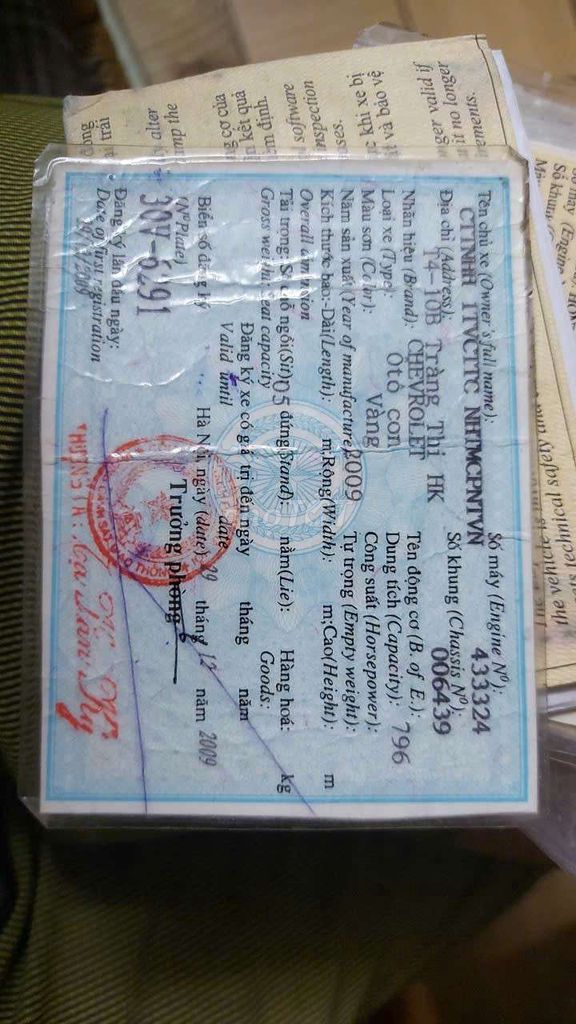 Tên chủ xe (Owner's full name):
CTTNHH 1TVCTTC NHTMCPNTVN
Địa chỉ (Address):
T4-10B Tràng Thi HK
Nhãn hiệu (Brand): CHEVROLET
Loại xe (Type): Ôtô con
Màu sơn (Color): Vàng
Năm sản xuất (Year of manufacture) 2009
Số máy (Engine Nº): 433324
Số khung (Chassis Nº): 006439
Tên động cơ (B. of E.):
Dung tích (Capacity): 796
Công suất (Horsepower):
Tự trọng (Empty weight):
Kích thước bao:-Dài(Length): m;Rộng(Width): m;Cao(Height): m
Overall dimension
Tải trọng: Số chỗ ngồi(Sit) 05 đứng(Stand): nằm(Lie): Hàng hoá: kg
Gross weight: Seat capacity Goods:
Đăng ký xe có giá trị đến ngày tháng năm
Valid until date
Biển số đăng ký
(Nº Plate)
30V-6291
Hà Nội, ngày (date) 29 tháng 12 năm 2009
Trưởng phòng
Đăng ký lần đầu ngày:
Date of first registration
THƯỢNG TÁ:
inspection
software
no longer
ger valid if
khi xe bị
và bảo vệ
Số khung
technical safety and
the vehicle